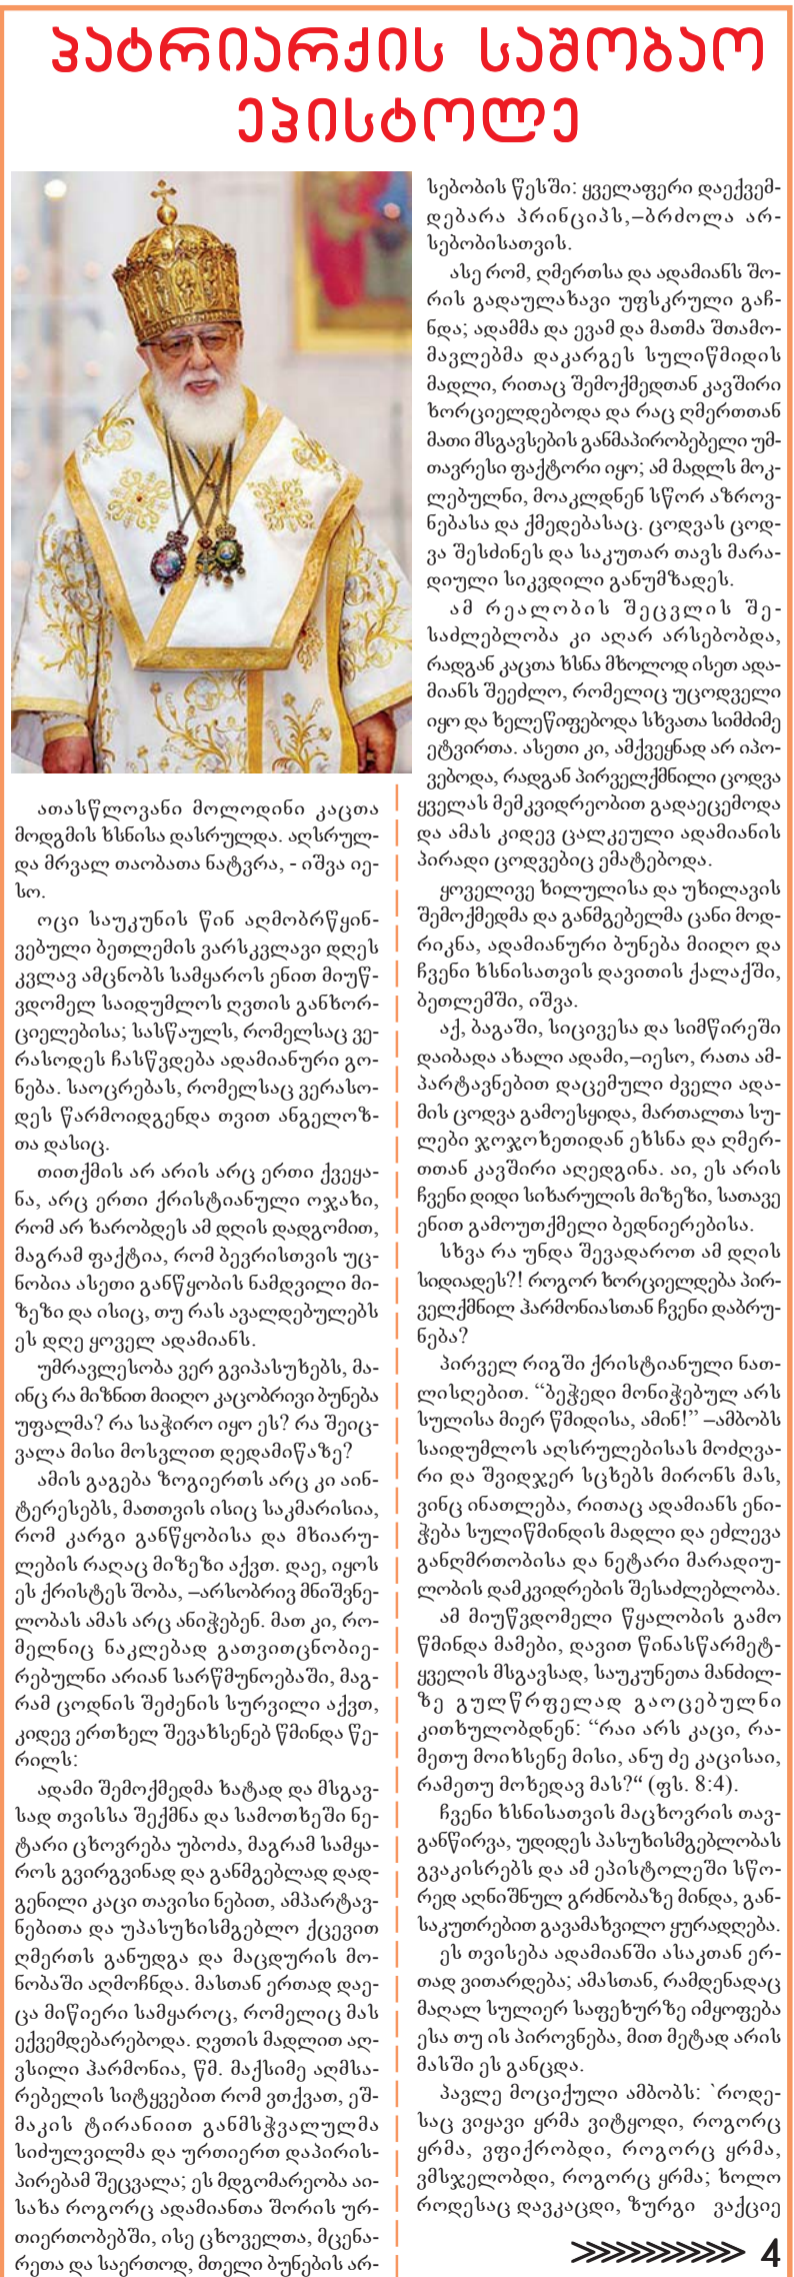 პატრიარქის საშობაო
ეპისტოლე
ათასწლოვანი მოლოდინი კაცთა
მოდგმის ხსნისა დასრულდა. აღსრულ-
და მრვალ თაობათა ნატვრა, - იშვა იე-
სო.
ოცი საუკუნის წინ აღმობრწყინ-
ვებული ბეთლემის ვარსკვლავი დღეს
კვლავ ამცნობს სამყაროს ენით მიუწ-
ვდომელ საიდუმლოს ღვთის განხორ-
ციელებისა; სასწაულს, რომელსაც ვე-
რასოდეს ჩასწვდება ადამიანური გო-
ნება. საოცრებას, რომელსაც ვერასო-
დეს წარმოიდგენდა თვით ანგელოზ-
თა დასიც.
თითქმის არ არის არც ერთი ქვეყა-
ნა, არც ერთი ქრისტიანული ოჯახი,
რომ არ ხარობდეს ამ დღის დადგომით,
მაგრამ ფაქტია, რომ ბევრისთვის უც-
ნობია ასეთი განწყობის ნამდვილი მი-
ზეზი და ისიც, თუ რას ავალდებულებს
ეს დღე ყოველ ადამიანს.
უმრავლესობა ვერ გვიპასუხებს, მა-
ინც რა მიზნით მიიღო კაცობრივი ბუნება
უფალმა? რა საჭირო იყო ეს? რა შეიც-
ვალა მისი მოსვლით დედამიწაზე?
ამის გაგება ზოგიერთს არც კი აინ-
ტერესებს, მათთვის ისიც საკმარისია,
რომ კარგი განწყობისა და მხიარუ-
ლების რაღაც მიზეზი აქვთ. დაე, იყოს
ეს ქრისტეს შობა, –არსობრივ მნიშვნე-
ლობას ამას არც ანიჭებენ. მათ კი, რო-
მელნიც ნაკლებად გათვითცნობიე-
რებულნი არიან სარწმუნოებაში, მაგ-
რამ ცოდნის შეძენის სურვილი აქვთ,
კიდევ ერთხელ შევახსენებ წმინდა წე-
რილს:
ადამი შემოქმედმა ხატად და მსგავ-
სად თვისსა შექმნა და სამოთხეში ნე-
ტარი ცხოვრება უბოძა, მაგრამ სამყა-
როს გვირგვინად და განმგებლად დად-
გენილი კაცი თავისი ნებით, ამპარტავ-
ნებითა და უპასუხისმგებლო ქცევით
ღმერთს განუდგა და მაცდურის მო-
ნობაში აღმოჩნდა. მასთან ერთად დაე-
ცა მიწიერი სამყაროც, რომელიც მას
ექვემდებარებოდა. ღვთის მადლით აღ-
ვსილი ჰარმონია, წმ. მაქსიმე აღმსა-
რებელის სიტყვებით რომ ვთქვათ, ეშ-
მაკის ტირანიით განმსჭვალულმა
სიძულვილმა და ურთიერთ დაპირის-
პირებამ შეცვალა; ეს მდგომარეობა აი-
სახა როგორც ადამიანთა შორის ურ-
თიერთობებში, ისე ცხოველთა, მცენა-
რეთა და საერთოდ, მთელი ბუნების არ-
სებობის წესში: ყველაფერი დაექვემ-
დებარა პრინციპს,–ბრძოლა არ-
სებობისათვის.
ასე რომ, ღმერთსა და ადამიანს შო-
რის გადაულახავი უფსკრული გაჩ-
ნდა; ადამმა და ევამ და მათმა შთამო-
მავლებმა დაკარგეს სულიწმიდის
მადლი, რითაც შემოქმედთან კავშირი
ხორციელდებოდა და რაც ღმერთთან
მათი მსგავსების განმაპირობებელი უმ-
თავრესი ფაქტორი იყო; ამ მადლს მოკ-
ლებულნი, მოაკლდნენ სწორ აზროვ-
ნებასა და ქმედებასაც. ცოდვას ცოდ-
ვა შესძინეს და საკუთარ თავს მარა-
დიული სიკვდილი განუმზადეს.
ამ რეალობის შეცვლის შე-
საძლებლობა კი აღარ არსებობდა,
რადგან კაცთა ხსნა მხოლოდ ისეთ ადა-
მიანს შეეძლო, რომელიც უცოდველი
იყო და ხელეწიფებოდა სხვათა სიმძიმე
ეტვირთა. ასეთი კი, ამქვეყნად არ იპო-
ვებოდა, რადგან პირველქმნილი ცოდვა
ყველას მემკვიდრეობით გადაეცემოდა
და ამას კიდევ ცალკეული ადამიანის
პირადი ცოდვებიც ემატებოდა.
ყოველივე ხილულისა და უხილავის
შემოქმედმა და განმგებელმა ცანი მოდ-
რიკნა, ადამიანური ბუნება მიიღო და
ჩვენი ხსნისათვის დავითის ქალაქში,
ბეთლემში, იშვა.
აქ, ბაგაში, სიცივესა და სიმწირეში
დაიბადა ახალი ადამი,–იესო, რათა ამ-
პარტავნებით დაცემული ძველი ადა-
მის ცოდვა გამოესყიდა, მართალთა სუ-
ლები ჯოჯოხეთიდან ეხსნა და ღმერ-
თთან კავშირი აღედგინა. აი, ეს არის
ჩვენი დიდი სიხარულის მიზეზი, სათავე
ენით გამოუთქმელი ბედნიერებისა.
სხვა რა უნდა შევადაროთ ამ დღის
სიდიადეს?! როგორ ხორციელდება პირ-
ველქმნილ ჰარმონიასთან ჩვენი დაბრუ-
ნება?
პირველ რიგში ქრისტიანული ნათ-
ლისღებით. “ბეჭედი მონიჭებულ არს
სულისა მიერ წმიდისა, ამინ!” –ამბობს
საიდუმლოს აღსრულებისას მოძღვა-
რი და შვიდჯერ სცხებს მირონს მას,
ვინც ინათლება, რითაც ადამიანს ენი-
ჭება სულიწმინდის მადლი და ეძლევა
განღმრთობისა და ნეტარი მარადიუ-
ლობის დამკვიდრების შესაძლებლობა.
ამ მიუწვდომელი წყალობის გამო
წმინდა მამები, დავით წინასწარმეტ-
ყველის მსგავსად, საუკუნეთა მანძილ-
ზე გულწრფელად გაოცებულნი
კითხულობდნენ: “რაი არს კაცი, რა-
მეთუ მოიხსენე მისი, ანუ ძე კაცისაი,
რამეთუ მოხედავ მას?“ (ფს. 8:4).
ჩვენი ხსნისათვის მაცხოვრის თავ-
განწირვა, უდიდეს პასუხისმგებლობას
გვაკისრებს და ამ ეპისტოლეში სწო-
რედ აღნიშნულ გრძნობაზე მინდა, გან-
საკუთრებით გავამახვილო ყურადღება.
ეს თვისება ადამიანში ასაკთან ერ-
თად ვითარდება; ამასთან, რამდენადაც
მაღალ სულიერ საფეხურზე იმყოფება
ესა თუ ის პიროვნება, მით მეტად არის
მასში ეს განცდა.
პავლე მოციქული ამბობს: `როდე-
საც ვიყავი ყრმა ვიტყოდი, როგორც
ყრმა, ვფიქრობდი, როგორც ყრმა,
ვმსჯელობდი, როგორც ყრმა; ხოლო
როდესაც დავკაცდი, ზურგი ვაქციე
4